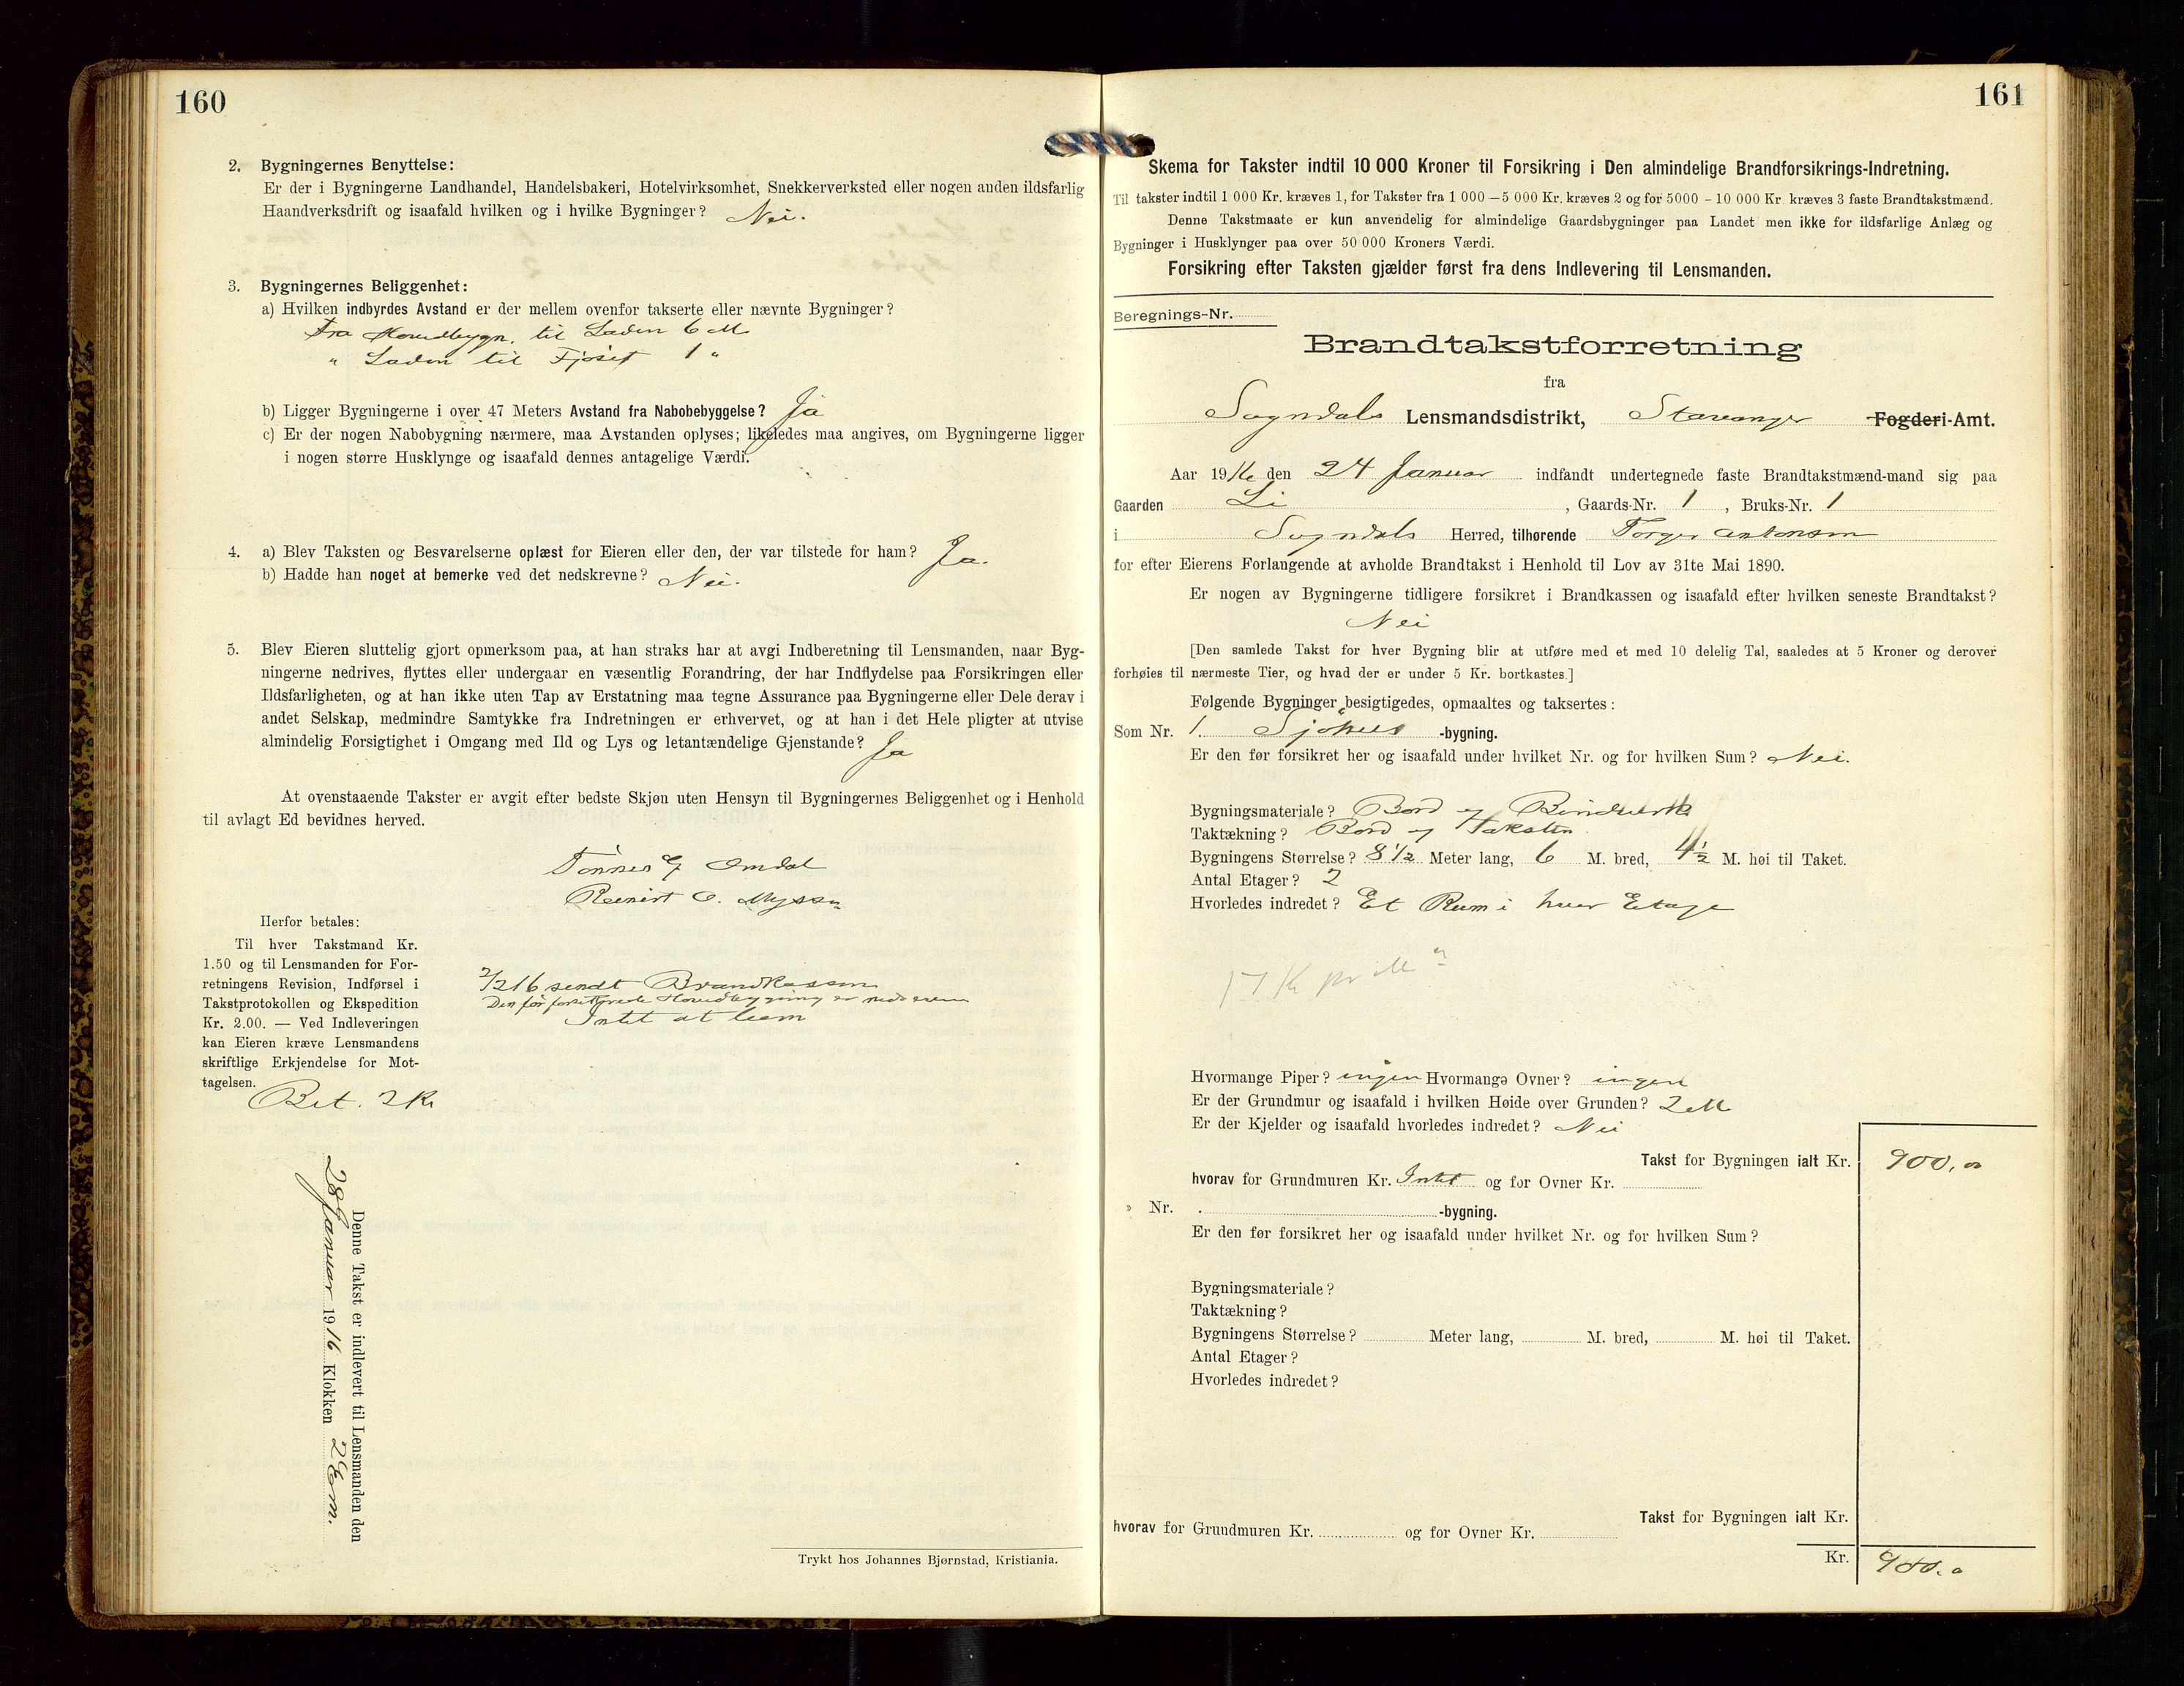 160
2. Bygningernes Benyttelse:
Er der i Bygningerne Landhandel, Handelsbakeri, Hotelvirksomhet, Snekkerverksted eller nogen anden ildsfarlig
Haandverksdrift og isaafald hvilken og i hvilke Bygninger? Nei.
3. Bygningernes Beliggenhet:
a) Hvilken indbyrdes Avstand er der mellem ovenfor takserte eller nævnte Bygninger?
Fra Hovedbygn. til Laden 6 M
" Laden til Fjøset 1 "
b) Ligger Bygningerne i over 47 Meters Avstand fra Nabobebyggelse? Ja
c) Er der nogen Nabobygning nærmere, maa Avstanden oplyses; likeledes maa angives, om Bygningerne ligger
i nogen større Husklynge og isaafald dennes antagelige Værdi.
4. a) Blev Taksten og Besvarelserne oplæst for Eieren eller den, der var tilstede for ham? Ja.
b) Hadde han noget at bemerke ved det nedskrevne? Nei.
5. Blev Eieren sluttelig gjort opmerksom paa, at han straks har at avgi Indberetning til Lensmanden, naar Byg-
ningerne nedrives, flyttes eller undergaar en væsentlig Forandring, der har Indflydelse paa Forsikringen eller
Ildsfarligheten, og at han ikke uten Tap av Erstatning maa tegne Assurance paa Bygningerne eller Dele derav i
andet Selskap, medmindre Samtykke fra Indretningen er erhvervet, og at han i det Hele pligter at utvise
almindelig Forsigtighet i Omgang med Ild og Lys og letantændelige Gjenstande? Ja
At ovenstaaende Takster er avgit efter bedste Skjøn uten Hensyn til Bygningernes Beliggenhet og i Henhold
til avlagt Ed bevidnes herved.
Tönnes G Omdal
Reinert O. Myssa
Herfor betales:
Til hver Takstmand Kr.
1.50 og til Lensmanden for For-
retningens Revision, Indførsel i
Takstprotokollen og Ekspedition
Kr. 2.00. — Ved Indleveringen
kan Eieren kræve Lensmandens
skriftlige Erkjendelse for Mot-
tagelsen.
Bet. 2 Kr
2/2 16 sendt Brandkassen
Den før forsikrede Hovedbygning er
Intet at
Denne Takst er indlevert til Lensmanden den
28 Januar 1916 Klokken 2 Em.
Trykt hos Johannes Bjørnstad, Kristiania.
161
Skema for Takster indtil 10 000 Kroner til Forsikring i Den almindelige Brandforsikrings-Indretning.
Til takster indtil 1 000 Kr. kræves 1, for Takster fra 1 000 – 5 000 Kr. kræves 2 og for 5000 – 10 000 Kr. kræves 3 faste Brandtakstmænd.
Denne Takstmaate er kun anvendelig for almindelige Gaardsbygninger paa Landet men ikke for ildsfarlige Anlæg og
Bygninger i Husklynger paa over 50 000 Kroners Værdi.
Forsikring efter Taksten gjælder først fra dens Indlevering til Lensmanden.
Beregnings-Nr.
Brandtakstforretning
fra
Sogndals Lensmandsdistrikt, Stavanger Fogderi-Amt.
Aar 1916 den 24 Januar indfandt undertegnede faste Brandtakstmænd-mand sig paa
Gaarden Li, Gaards-Nr. 1, Bruks-Nr. 1
i Sogndals Herred, tilhørende Torger Antonsen
for efter Eierens Forlangende at avholde Brandtakst i Henhold til Lov av 31te Mai 1890.
Er nogen av Bygningerne tidligere forsikret i Brandkassen og isaafald efter hvilken seneste Brandtakst?
Nei
[Den samlede Takst for hver Bygning blir at utføre med et med 10 delelig Tal, saaledes at 5 Kroner og derover
forhøies til nærmeste Tier, og hvad der er under 5 Kr. bortkastes.]
Følgende Bygninger besigtigedes, opmaaltes og taksertes:
Som Nr. 1. Sjøhus -bygning.
Er den før forsikret her og isaafald under hvilket Nr. og for hvilken Sum? Nei.
Bygningsmateriale? Bord og Bindverk
Taktækning? Bord og Taksten
Bygningens Størrelse? 8 1/2 Meter lang, 6 M. bred, 4 1/2 M. høi til Taket.
Antal Etager? 2
Hvorledes indredet? Et Rum i hver Etage
17 K pr M²
Hvormange Piper? ingen Hvormange Ovner? ingen
Er der Grundmur og isaafald i hvilken Høide over Grunden? 2 M
Er der Kjelder og isaafald hvorledes indredet? Nei
Takst for Bygningen ialt Kr. 900,00
hvorav for Grundmuren Kr. Intet og for Ovner Kr.
» Nr. . -bygning.
Er den før forsikret her og isaafald under hvilket Nr. og for hvilken Sum?
Bygningsmateriale?
Taktækning?
Bygningens Størrelse? Meter lang, M. bred, M. høi til Taket.
Antal Etager?
Hvorledes indredet?
Takst for Bygningen ialt Kr.
hvorav for Grundmuren Kr. og for Ovner Kr.
Kr. 900.0